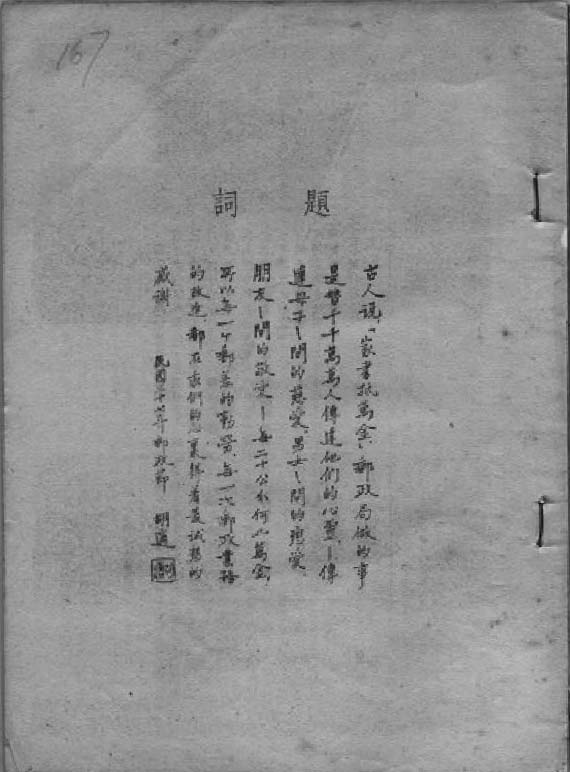 167
題詞
古人說,「家書抵萬金」,郵政局做的事
是替千千萬萬人傳達他們的心靈,—傳
達母子—間的慈愛,男女—間的戀愛,
朋友—間的敬愛—每二十公分何止萬金,
所以每一個郵差的勤勞,每一次郵政業務
的改進,都在我們的心裏得着最誠懇的
感謝
民國 郵政節 胡適